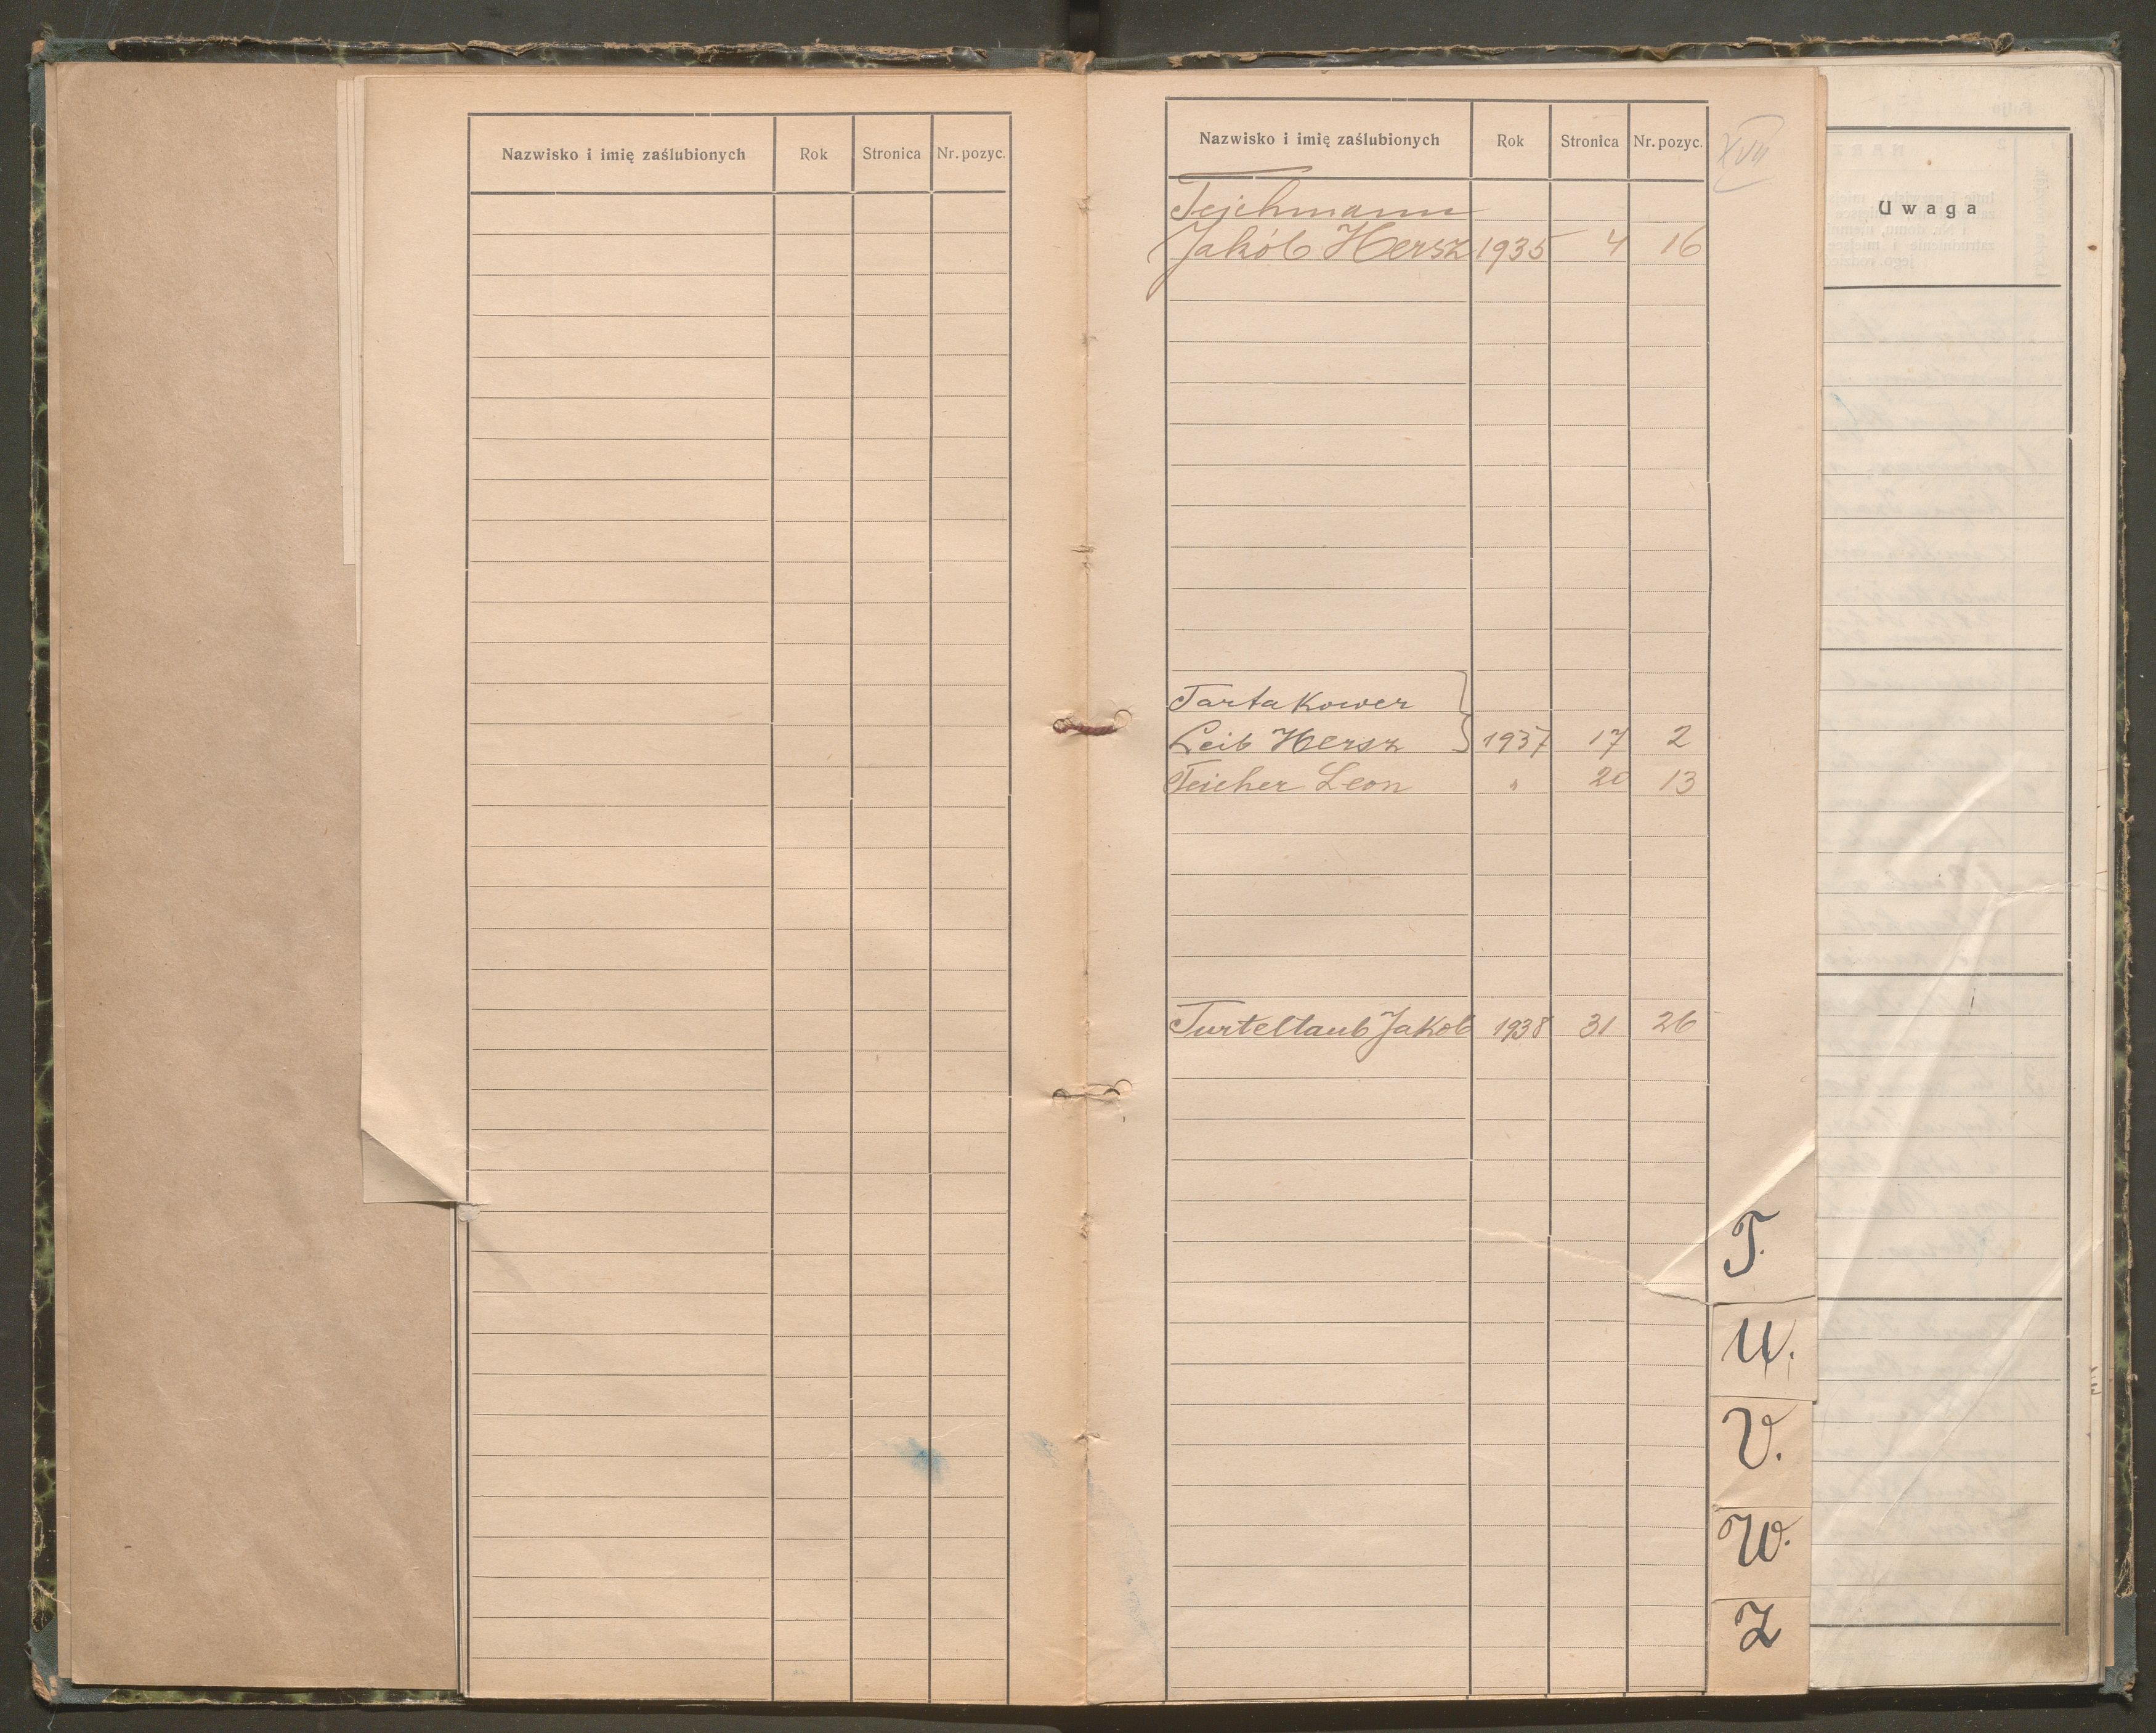 Nazwisko i imię zaślubionych Rok Stronica Nr. pozyc.
Nazwisko i imię zaślubionych Rok Stronica Nr. pozyc.
XVII
Tejchmann
Jakób Hersz 1935 4 16
Tartakower
Leib Hersz 1937 17 2
Teicher Leon " 20 13
Turteltaub Jakob 1938 31 26
T.
U.
V.
W.
Z
Uwaga